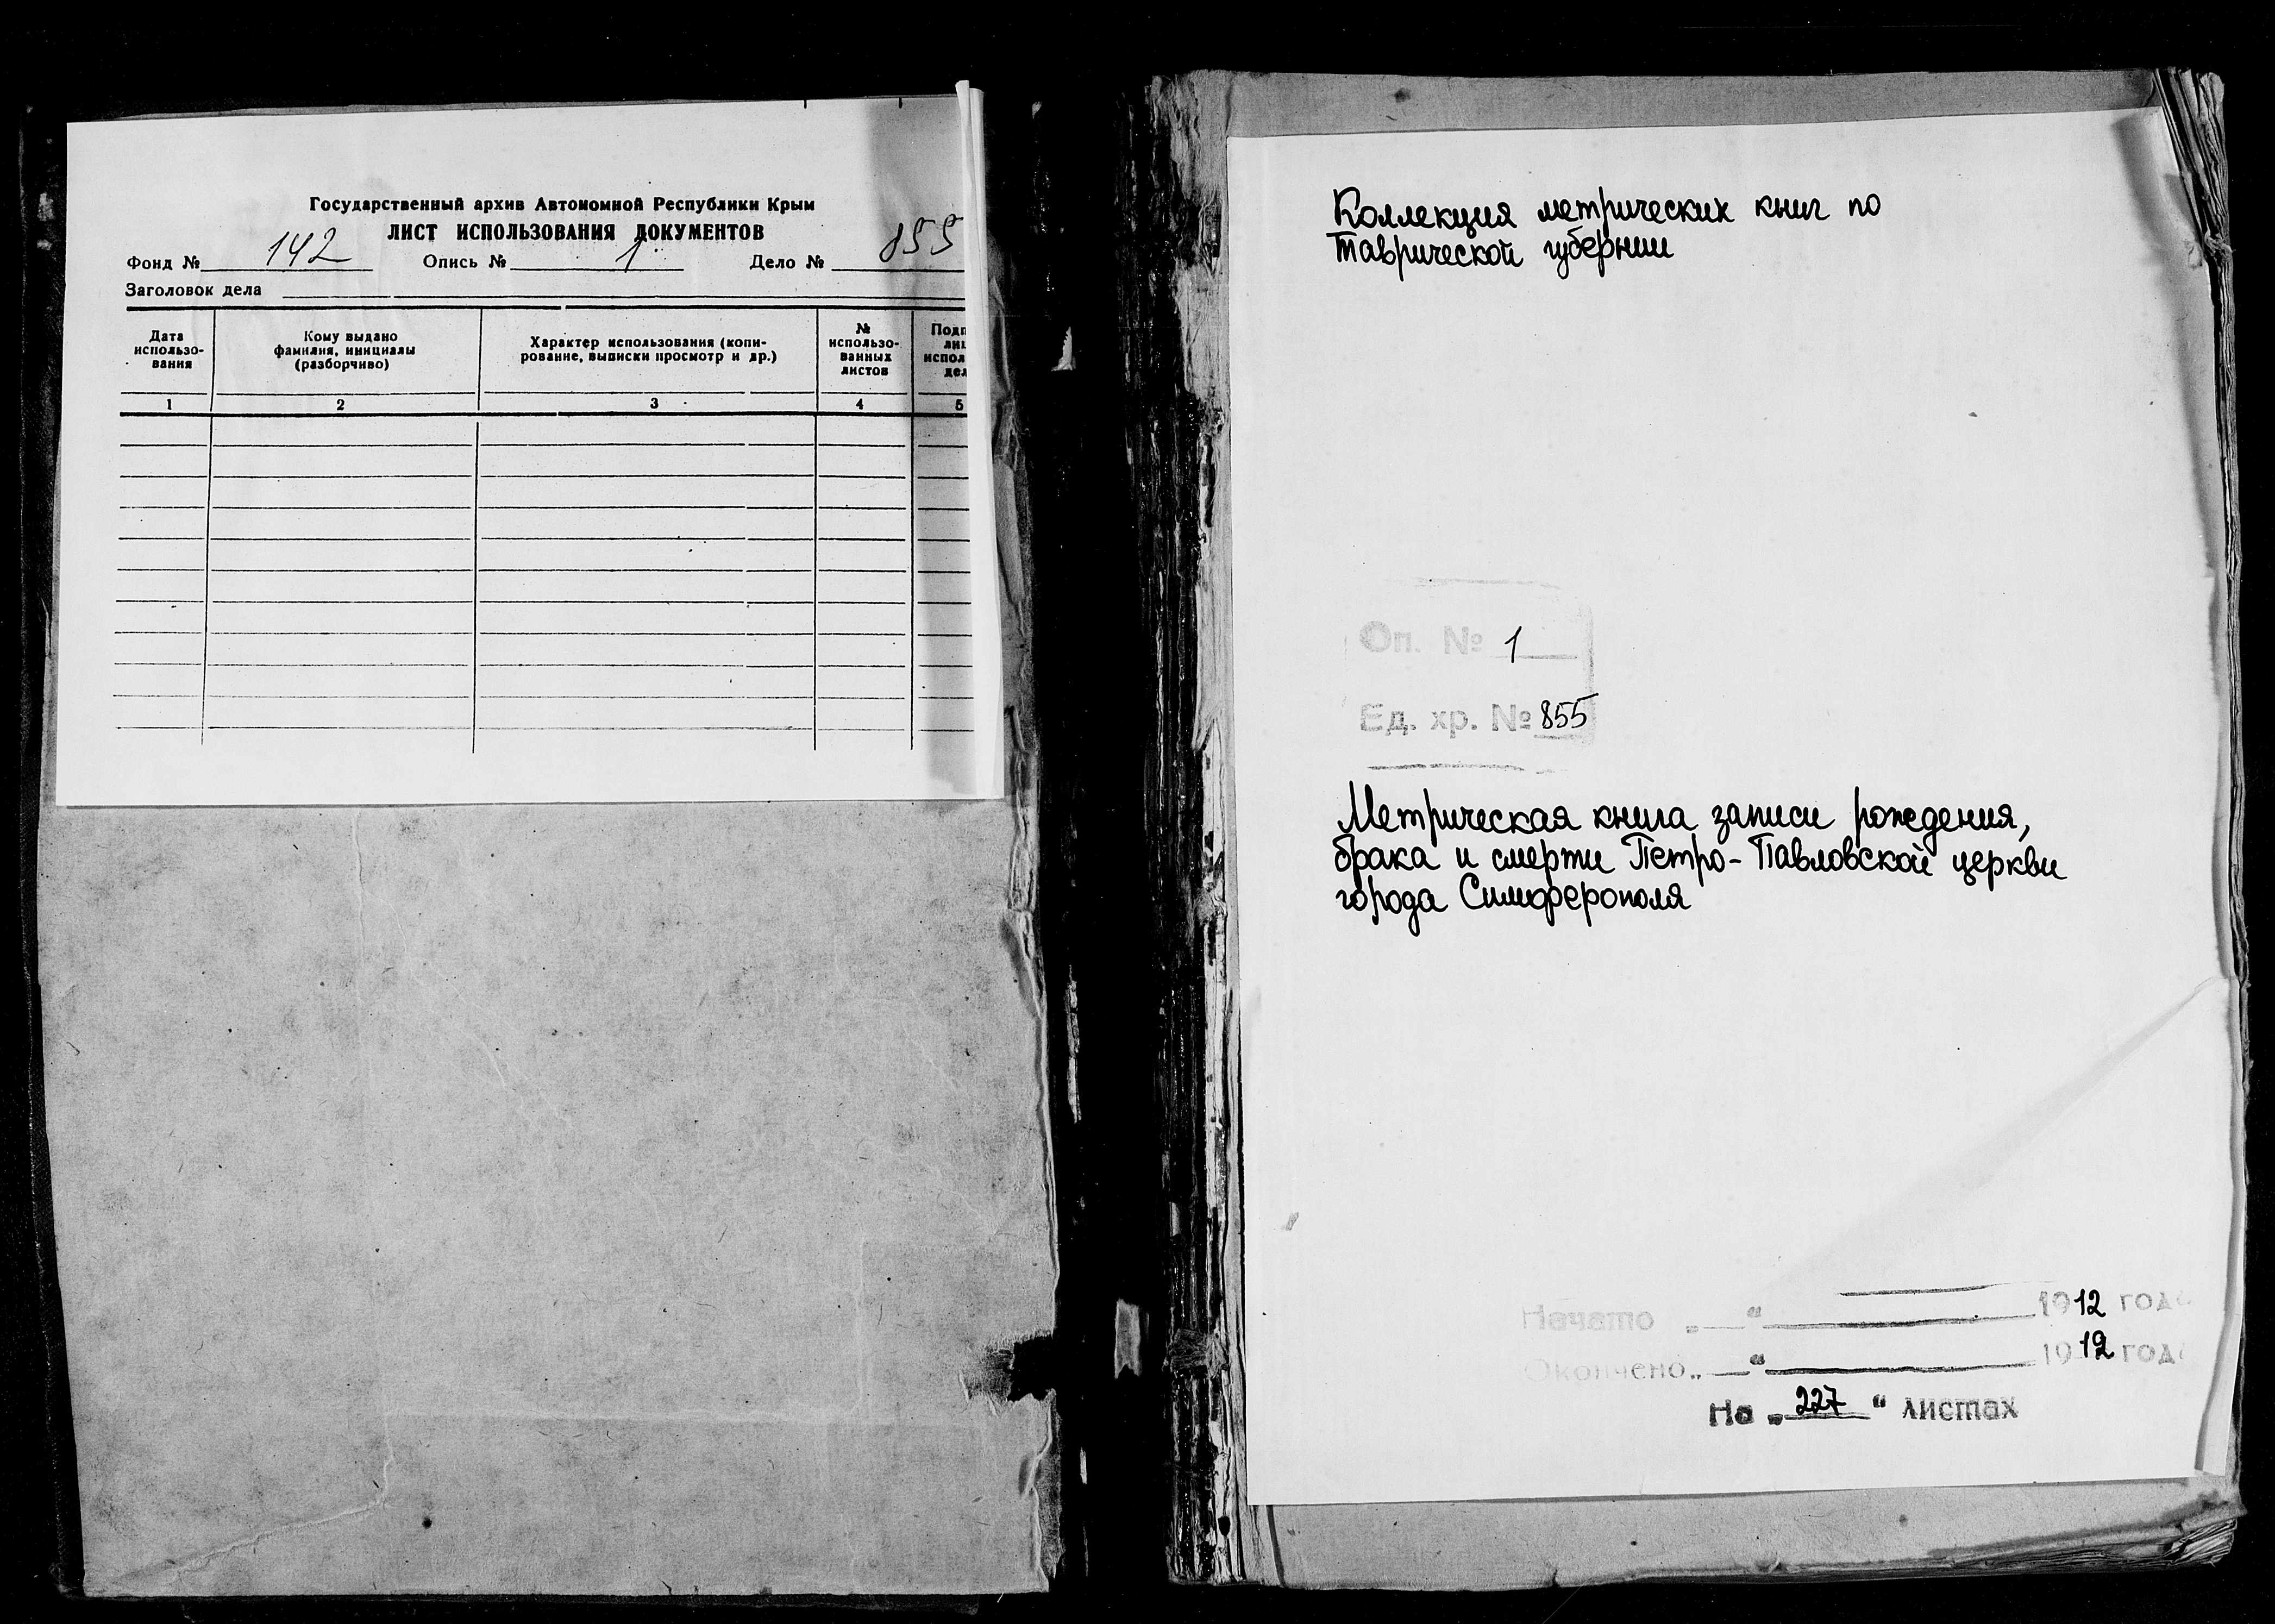 Государственный архив Автономной Республики Крым
ЛИСТ ИСПОЛЬЗОВАНИЯ ДОКУМЕНТОВ
Фонд № 142 Опись № 1 Дело № 855
Заголовок дела
Дата
использо-
вания
Кому выдано
фамилия, инициалы
(разборчиво)
Характер использования (копи-
рование, выписки просмотр и др.)
№
использо-
ванных
листов
Подп
ли
испол
дел
1 2 3 4 5
Коллекция метрических книг по
Таврической губернии
Оп. № 1
Ед. хр. № 855
Метрическая книга записи рождения,
брака и смерти Петро-Павловской церкви
города Симферополя
Начато „ “ 1912 года
Окончено „ “ 1912 года
На „227“ листах